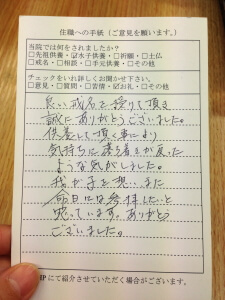 住職への手紙（ご意見を願います。）
当院では何をされましたか？
□先祖供養・☑水子供養・□祈願・□土仏
□戒名・□相談・□手元供養・□その他
チェックをいれ詳しくお聞かせ下さい。
□意見・□質問・□苦情・☑お礼・□その他
良い戒名を授りて頂き
誠にありがとうございました。
供養して頂く事により
気持ちに落ち着きが戻った
ような気がしました。
我が子を想い、また
命日には参拝したいと
思っています。ありがとう
ございました。
HPにて紹介させていただく場合がございます。